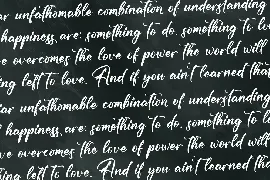 ar unfathomable combination of understanding
happiness, are: something to do, something to lo
ve overcomes the love of power the world will
ing left to love. And if you ain't learned tha
ar unfathomable combination of understanding
f happiness, are: something to do, something to l
ve overcomes the love of power the world will
ing left to love. And if you ain't learned tha